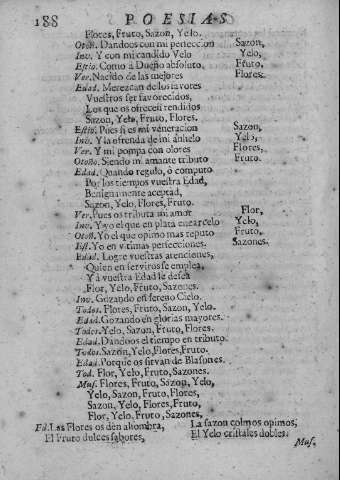 188 POESIAS
Flores, Fruto, Sazon, Yelo.
Otoñ. Dandoos con mi perfeccion Sazon,
Inv. Y con mi candido Velo Yelo,
Estio. Como à Dueño absoluto, Fruto,
Ver. Nacido de las mejores Flores.
Edad. Merezcan de los favores
Vuestros ser favorecidos,
Los que os ofrecen rendidos
Sazon, Yelo, Fruto, Flores.
Estio. Pues si es mi veneracion Sazon,
Inv. Y la ofrenda de mi anhelo Yelo,
Ver. Y mi pompa con olores Flores,
Otoño. Siendo mi amante tributo Fruto.
Edad. Quando regulo, ò computo
Por los tiempos vuestra Edad,
Benignamente aceptad,
Sazon, Yelo, Flores, Fruto.
Ver. Pues os tributa mi amor Flor,
Inv. Y yo el que en plata encarcelo Yelo,
Otoñ. Yo el que opimo mas reputo Fruto,
Est. Yo en vitimas perfecciones. Sazones.
Edad. Logre vuestras atenciones,
Quien en serviros se emplea,
Y à vuestra Edad le desea
Flor, Yelo, Fruto, Sazones.
Inv. Gozando en sereno Cielo.
Todos. Flores, Fruto, Sazon, Yelo.
Edad. Gozando en glorias mayores.
Todos. Yelo, Sazon, Fruto, Flores.
Edad. Dandoos el tiempo en tributo.
Todos. Sazon, Yelo, Flores, Fruto.
Edad. Porque os sirvan de Blasones.
Tod. Flor, Yelo, Fruto, Sazones.
Mus. Flores, Fruto, Sazon, Yelo,
Yelo, Sazon, Fruto, Flores,
Sazon, Yelo, Flores, Fruto,
Flor, Yelo, Fruto, Sazones,
Ed. Las Flores os dèn alhombra,
El Fruto dulces sabores,
La sazon colmos opimos,
El Yelo cristales dobles.
Mus.